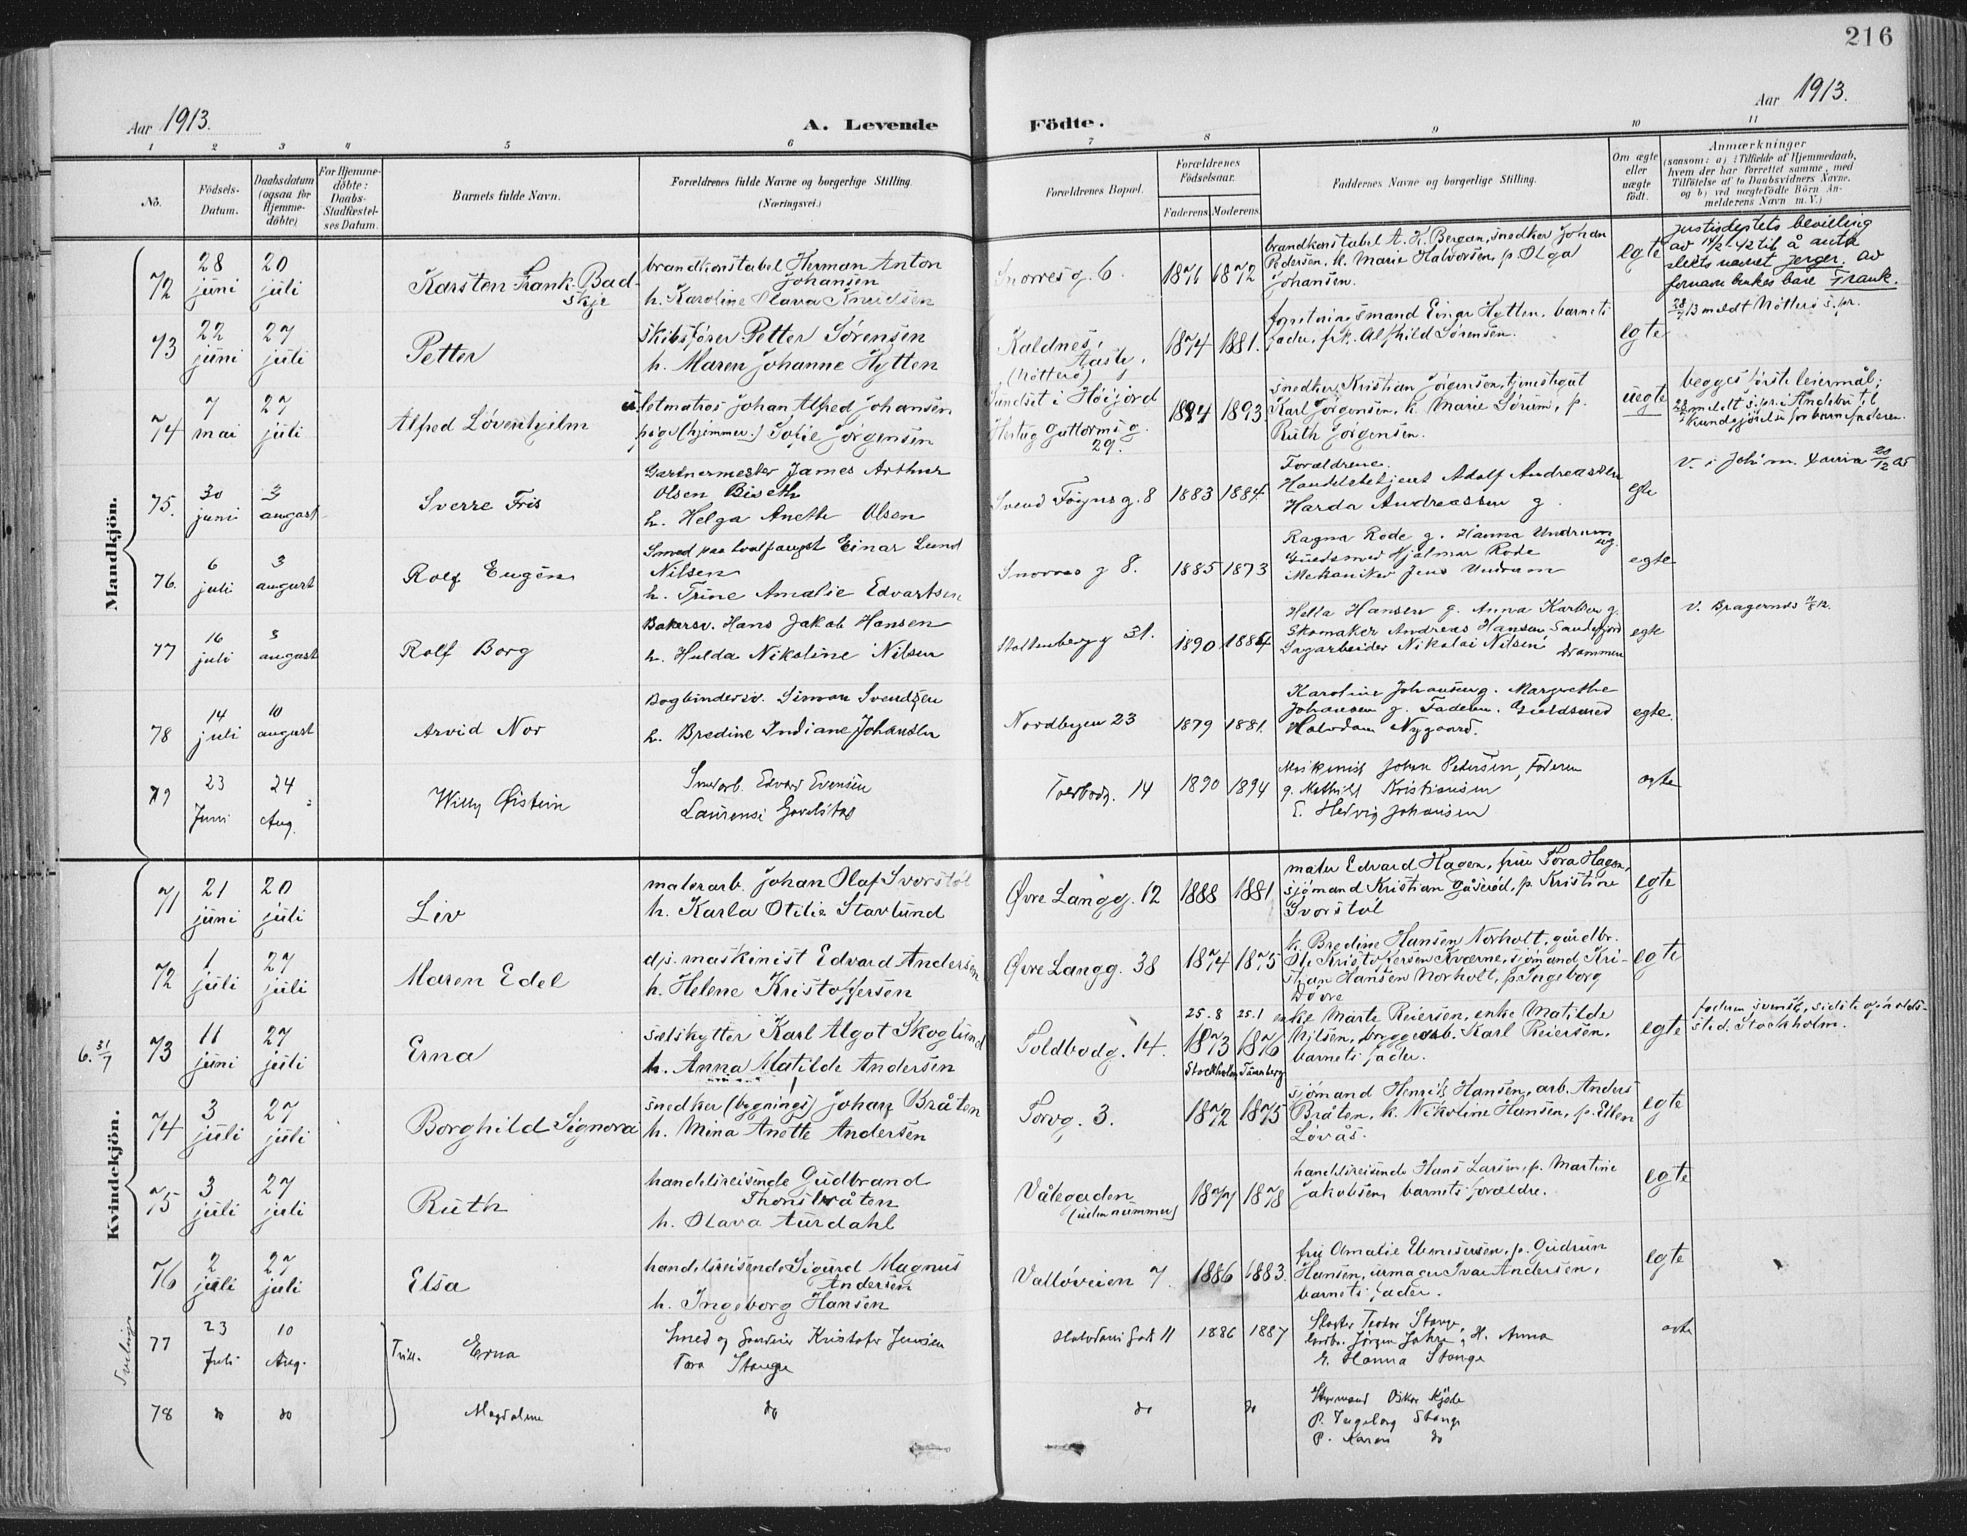 216
Aar 1913.
A. Levende
Födte.
Aar 1913.
1 2 3 4 5 6 7 8 9 10 11
No.
Födsels-
Datum.
Daabsdatum
(ogsaa for
Hjemme-
döbte)
For Hjemme-
döbte:
Daabs-
Stadfæstel-
ses Datum.
Barnets fulde Navn.
Forældrenes fulde Navne og borgerlige Stilling.
(Næringsvei.)
Forældrenes Bopæl.
Forældrenes
Födselsaar.
Faderens. Moderens.
Faddernes Navne og borgerlige Stilling.
Om ægte
eller
uægte
födt.
Anmærkninger
(saasom: a) i Tilfælde af Hjemmedaab,
hvem der har forrettet samme, med
Tilföielse af to Daabsvidners Navne,
og b) ved uægtefödte Börn An-
melderens Navn m. V.)
Mandkjön.
72
28 juni
20 juli
Karsten Frank Bad-
skje
brandkonstabel Herman Anton
Johansen
h. Karoline Olava Knudsen
Snorres g. 6.
1871 1872
brandkonstabel A. H. Bergan, snedker Johan
Pedersen, k. Marie Halvorsen, p. Olga
Johansen.
egte
Justisdeptets bevilling
av 14/2-42 til å anta
slektsnavnet Jerger. Av
fornavn brukes bare Frank.
73
22 juni
27 juli
Petter
skibsfører Petter Sørensen
h. Maren Johanne Hytten
Kaldnes,
(Nötterö)
1874 1881.
forretningsmand Einar Hytten, barnets
fader, frk. Alfhild Sørensen.
egte
28/7 13 meldt Nötterö s.pr.
74
7 mai
27 juli
Alfred Løvenhjelm
Johan Alfred Johansen
pige (hjemmev.) Sofie Jørgensen
Sundset i Höijord
Hertug Guttorms g.
29.
1894 1893.
snedker Kristian Jørgensen, tjenestegut
Karl Jørgensen, k. Marie Sørum, p.
Ruth Jørgensen.
uegte
begges første leiermål;
meldt s.pr. i Andebu til
for barnefaderen.
75.
30 juni
3 august
Sverre Fris
Gartnermester James Arthur
Olsen Biseth
h. Helga Anette Olsen
Svend Föyns g. 8
1883 1884.
Forældrene.
Handelsbetjent Adolf Andreassen
Harda Andreassen g.
egte
76.
6 juli
3 august
Rolf Eugén
Smed paa hvalfangst Einar Lund
Nilsen
h. Trine Amalie Edvartsen
Snorres g 8.
1885 1873
Ragna Rode g. Hanna Undrum
ug.
Guldsmed Hjalmar Rode
Mekaniker Jens Undrum
egte
77
16 juli
3 august
Rolf Borg
Bakersv. Hans Jakob Hansen
h. Hulda Nikoline Nilsen
Stoltenberg g 31.
1890 1884
Hella Hansen g. Anna Karlsen g.
Skomaker Andreas Hansen Sandefjord
Sagarbeider Nikolai Nilsen
Drammen
egte
V. Bragernes
78
14 juli
10 august
Arvid Nor
Bogbindersv. Simon Svendsen
h. Bredine Indiane Johansen
Nordbyen 23
1879 1881.
Karoline Johansen g. Margrethe
Johansen g. Faderen. Guldsmed
Halvdan Nygaard.
egte.
79
23 Juni
24 Aug.
Willy Øistein
Smedarb. Edvard Evensen
Toldbodg. 14
1890 1894
Maskinist Johan Petersen, Faderen
g. Mathild Kristiansen
E. Hedvig Johansen
ægte
Kvindekjön.
71
21 juni
20 juli
Liv
malerarb. Johan Olaf Svorstöl
h. Karla Otilie Stavlund
Øvre Langg. 12
1888 1881
maler Edvard Hagen, frue Tora Hagen,
sjømand Kristian Gåserød, p. Kristine
Svorstöl
egte
72
1 juli
27 juli
Maren Edel
d/s. maskinist Edvard Andersen
h. Helene Kristoffersen
Øvre Langg. 38
1874 1875
k. Bredine Hansen Norholt, gårdbr.
Ole Kristoffersen Kverne, sjömand Kri-
stian Hansen Norholt, p. Ingeborg
Døvre
egte
6. 31/7
73
11 juni
27 juli
Erna
selskytter Karl Algot Skoglund
h. Anna Matilde Andersen
Toldbodg. 14.
25.8 25.1
1873 1876
Stockholm Tønsberg
enke Marte Reiersen, enke Matilde
Nilsen, bryggearb. Karl Reiersen,
barnets fader.
egte
faderen svensk, sidste opholds-
sted Stockholm.
74
3 juli
27 juli
Borghild Signora
snedker (bygnings) Johan Bråten
h. Mina Anette Andersen
Torvg. 3.
1872 1875
sjömand Henrik Hansen, arb. Anders
Bråten, k. Nikoline Hansen, p. Ellen
Løvås.
egte
75
3 juli
27 juli
Ruth
handelsreisende Gudbrand
Thonsbråten
h. Olava Aurdahl
Vålegaden
(uden nummer)
1877 1878
handelsreisende Hans Larsen, p. Martine
Jakobsen, barnets forældre.
egte
76
2 juli
27 juli
Elsa
handelsreisende Sigurd Magnus
Andersen
h. Ingeborg Hansen
Vallöveien 7.
1886 1883.
fru Amalie Ebenesersen, p. Gudrun
Hansen, urmager Ivar Andersen,
barnets fader.
egte
77
23 Juli
10 Aug.
Tvill. Erna
Smed og Kristofer Jensen
Tora Stange
Halvdans Gade 11
1886 1887
Teodor Stange,
Jørgen H. Anna
G. Hanna Stange
ægte
78
do do
Magdalene
do
do do
Styrmand Oskar
P. Ingeborg Stange
P. Karen do